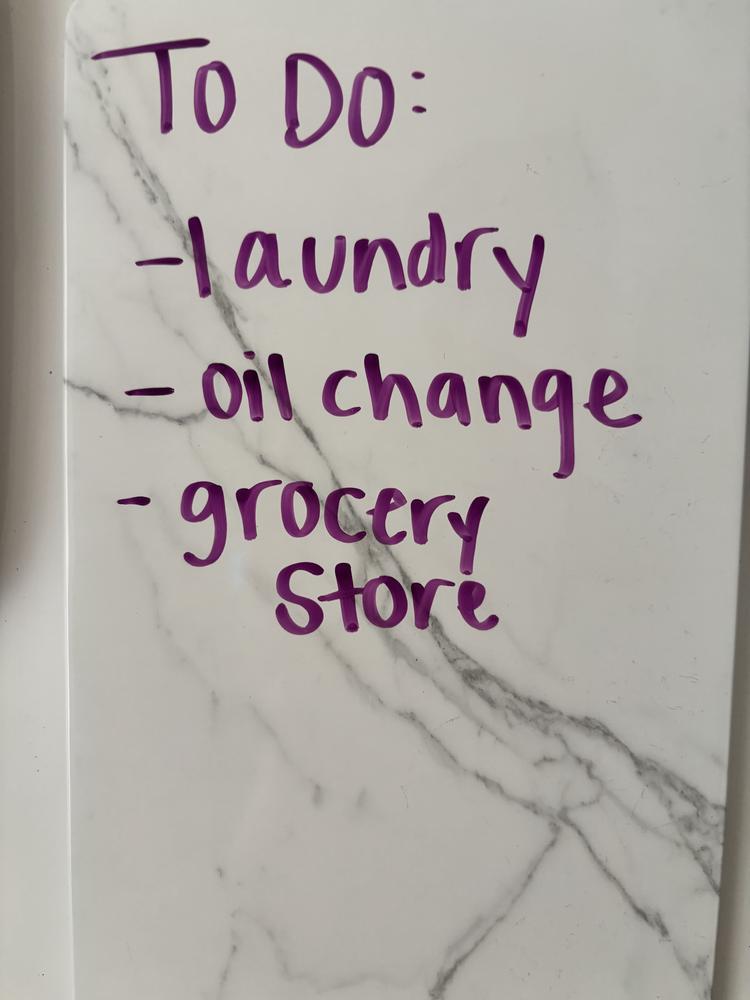 To Do:
- laundry
- oil change
- grocery
Store